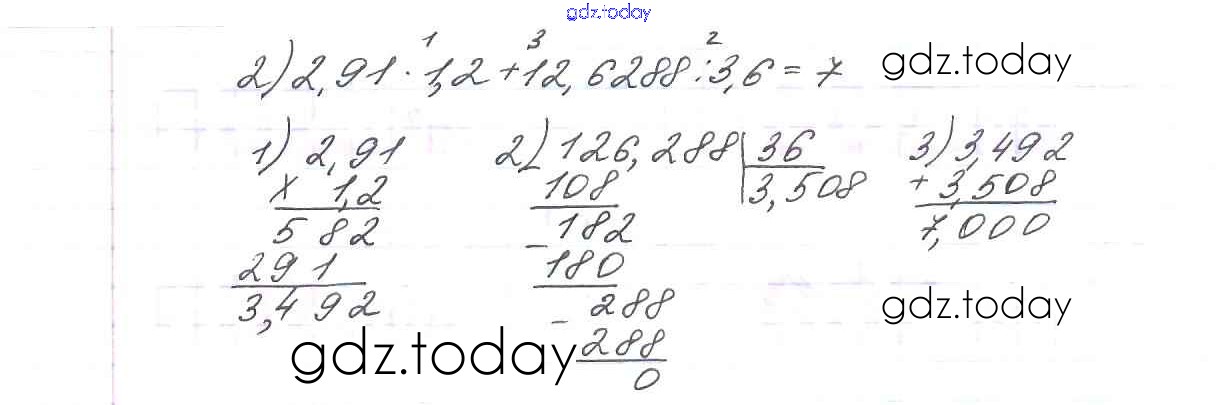 gdz.today
1 3 2
2) 2,91 · 1,2 + 12,6288 : 3,6 = 7 gdz.today
1) 2,91 2) 126,288 36 3) 3,492
x 1,2 108 3,508 + 3,508
5 82 - 182 7,000
291 180
3,492 - 288 gdz.today
gdz.today 288
0